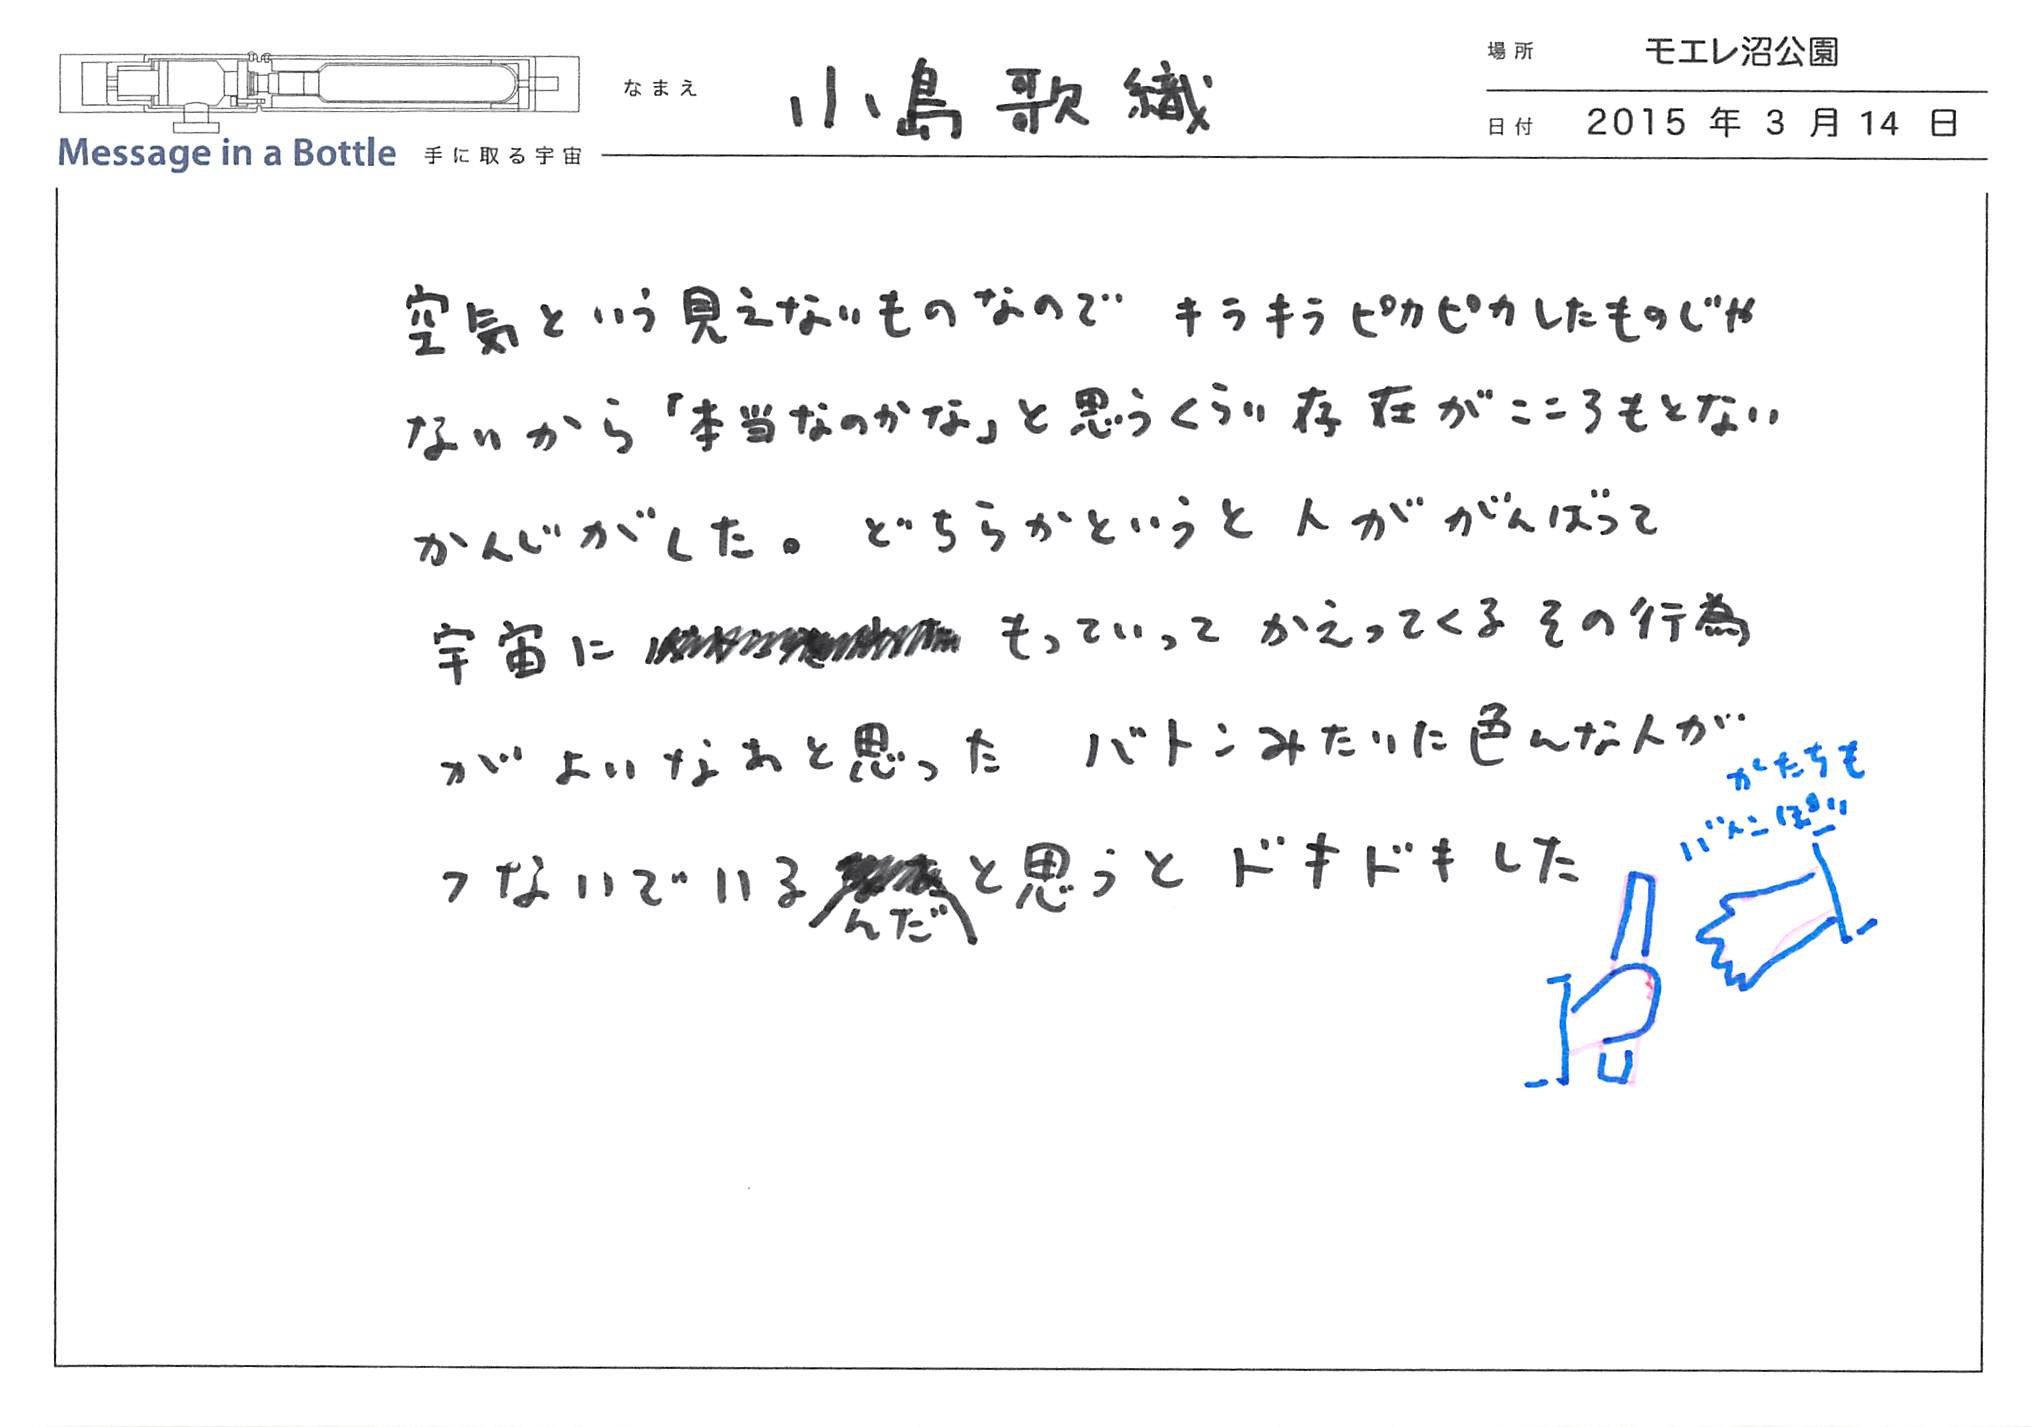 なまえ 小島歌織
場所 モエレ沼公園
日付 2015 年 3 月 14 日
Message in a Bottle 手に取る宇宙
空気という見えないものなので キラキラピカピカしたものじゃ
ないから「本当なのかな」と思うくらい存在がこころもとない
かんじがした。どちらかというと人ががんばって
宇宙に もっていって かえってくるその行為
がよいなぁと思った バトンみたいに色んな人が
つないでいるんだと思うと ドキドキした
かたちも
バトンぽい